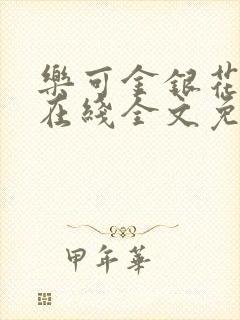 樂可金銀花
在綫全文免
甲年華